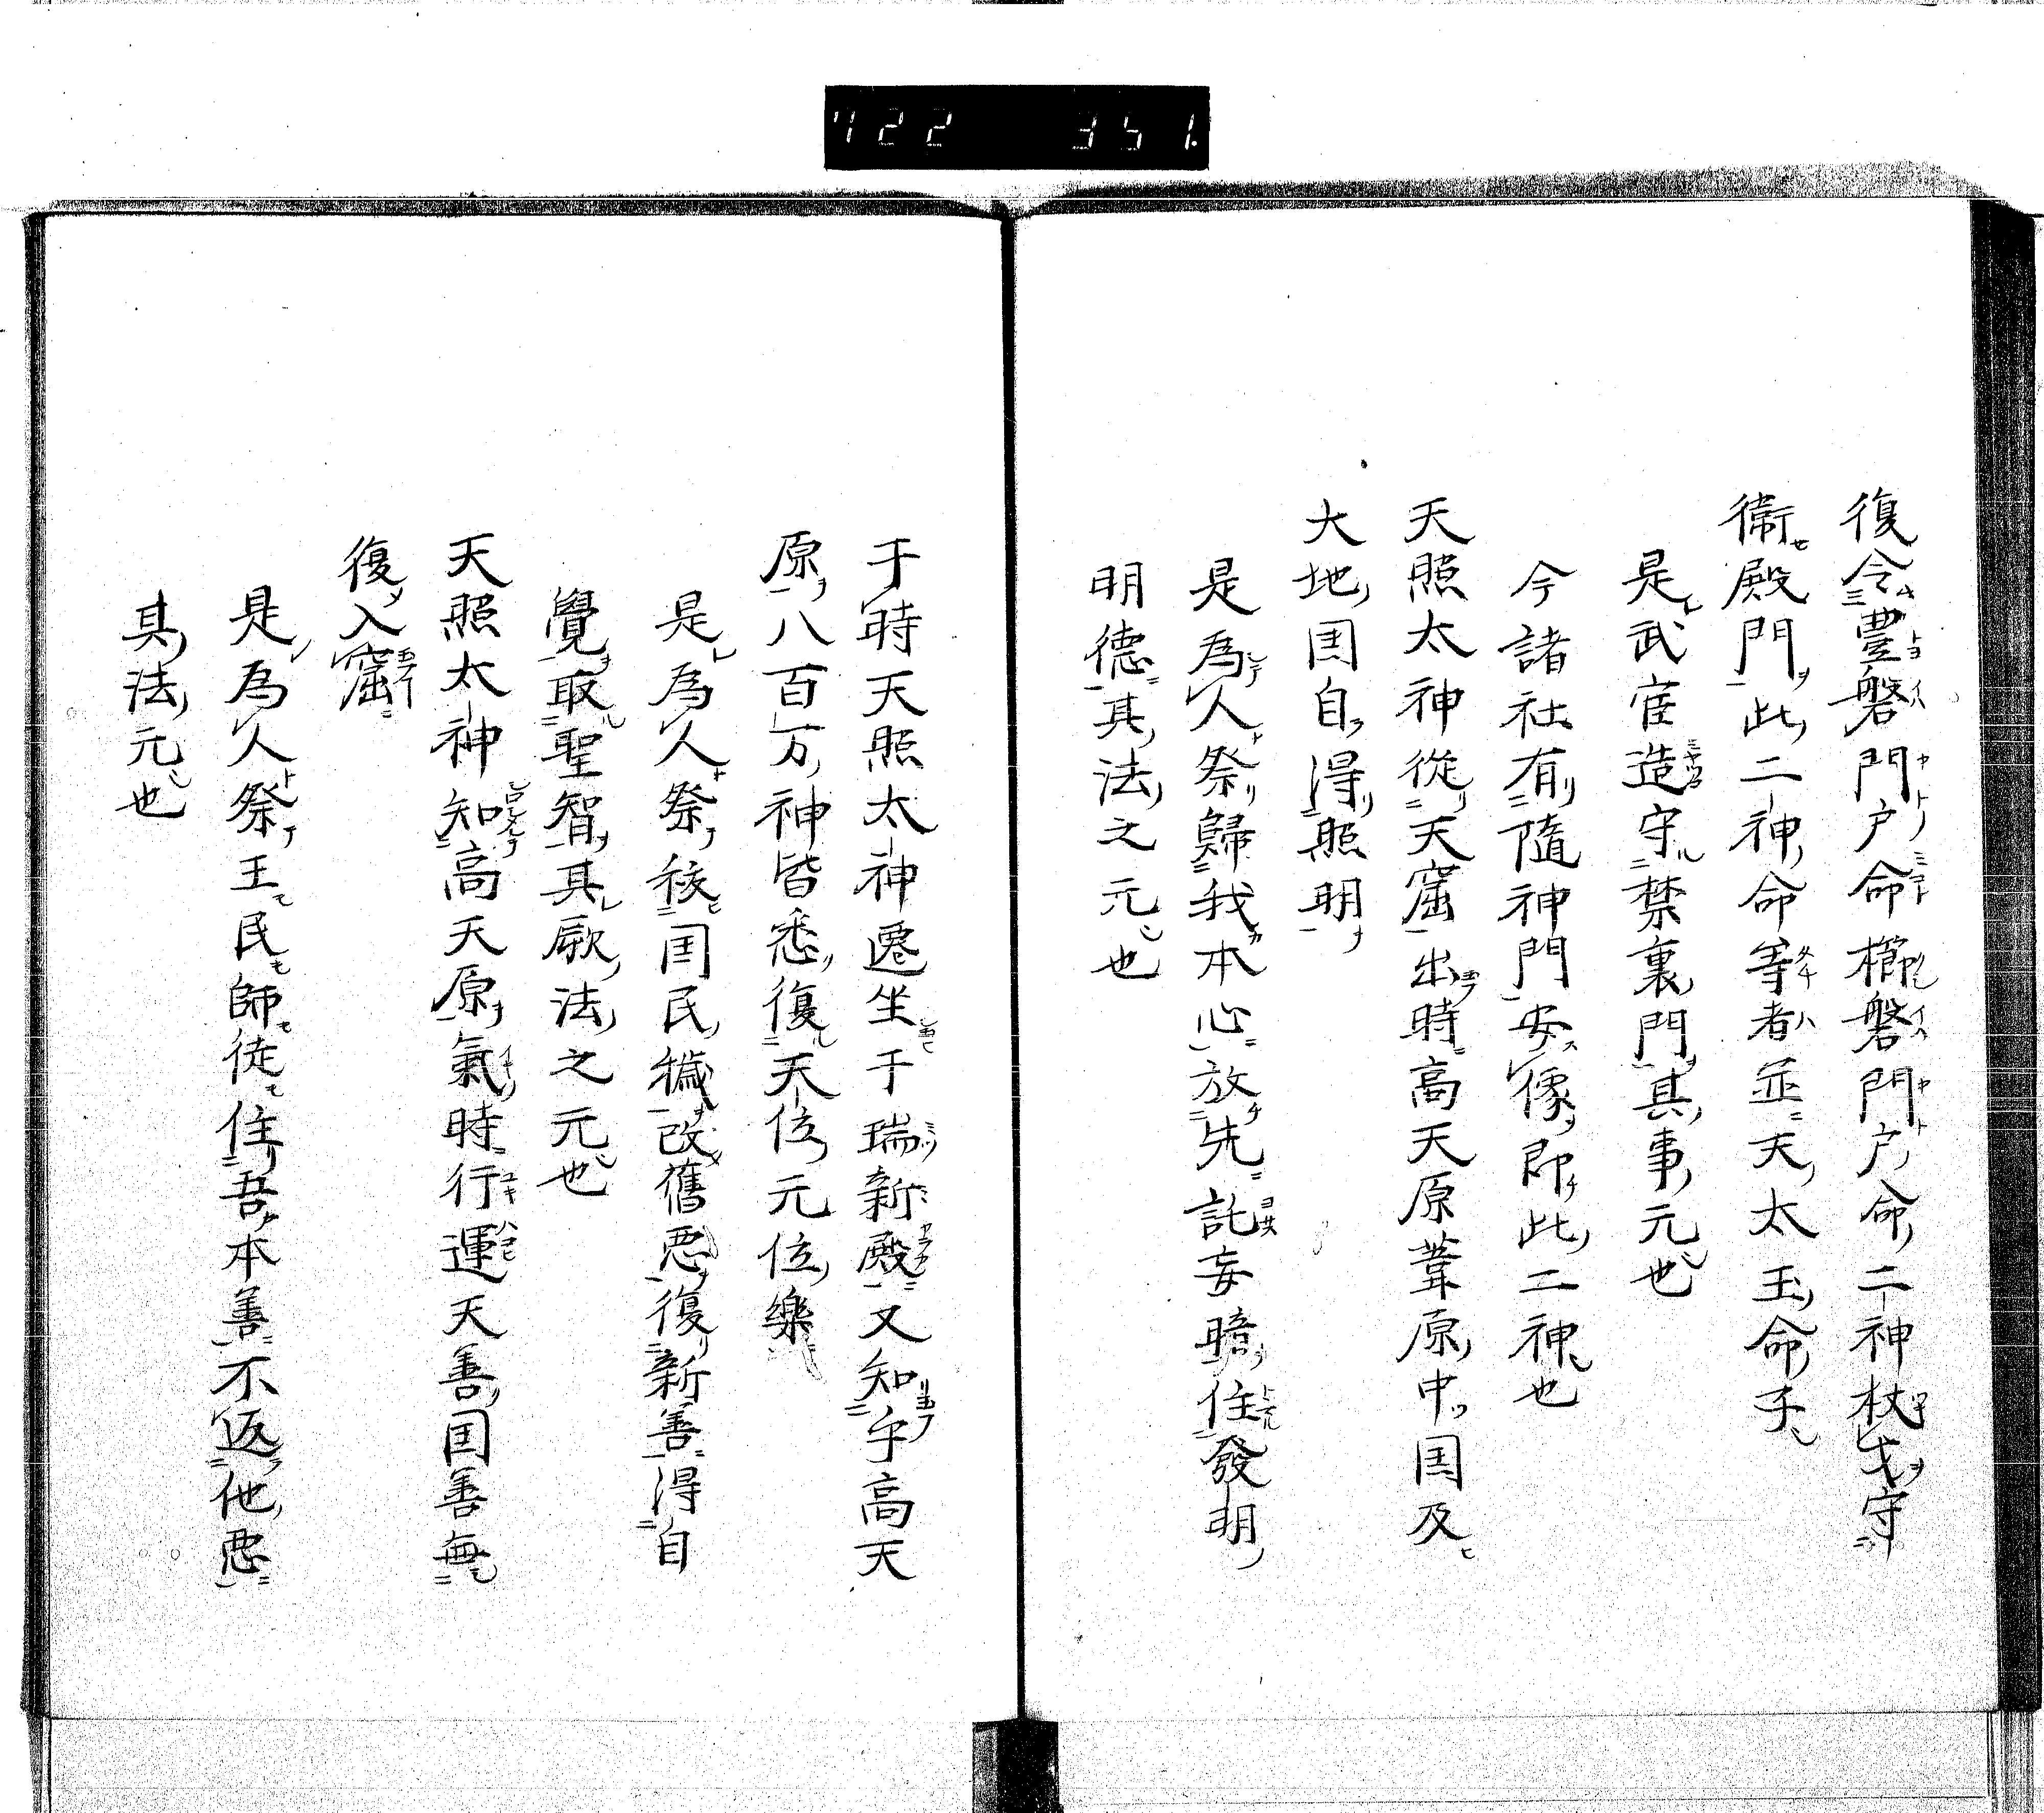 722 351.
復令豊磐門戸命櫛磐門戸命二神杖戈守
衛殿門此二神命等者並天太玉命子
是武官造守禁裏門其事元也
今諸社有隨神門安像即此二神也
天照太神從天窟出時高天原葦原中国及
大地国自得照明
是為人祭歸我本心放先託妄暗住發明
明德其法之元也
于時天照太神遷坐于瑞新殿又知乎高天
原八百万神皆悉復天位元位樂
是為人祭祓国民穢改舊悪復新善得自
覺取聖智其厥法之元也
天照太神知高天原氣時行運天善国善無
復入窟
是為人祭王民師徒住吾本善不返他悪
其法元也